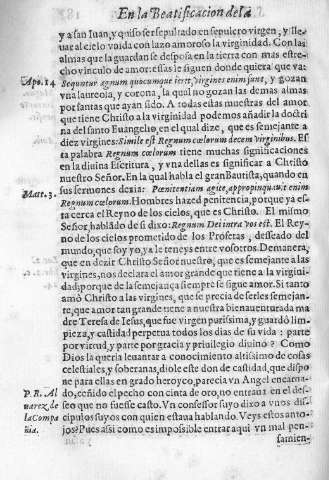 En la Beatificacion de la
y a san Iuan, y quiso ser sepultado en sepulcro virgen, y lle-
uar al cielo vnida con lazo amoroso la virginidad. Con las
almas que la guardan se desposa en la tierra con mas estre-
cho vinculo de amor: essas le siguen donde quiera que va:
Apo. 14. Sequuntur agnum quocumque ierit, virgines enim sunt, y gozan
vna laureola, y corona, la qual no gozan las demas almas
por santas que ayan sido. A todas estas muestras del amor
que tiene Christo a la virginidad podemos añadir la doctri
na del santo Euangelio, en el qual dize, que es semejante a
diez virgines: Simile est Regnum cœlorum decem virginibus. Es
ta palabra Regnum cœlorum tiene muchas significaciones
en la diuina Escritura, y vna dellas es significar a Christo
nuestro Señor. En la qual habla el gran Bautista, quando en
sus sermones dezia: Pœnitentiam agite, appropinquauit enim
Matt. 3. Regnum cœlorum. Hombres hazed penitencia, porque ya es-
ta cerca el Reyno de los cielos, que es Christo. El mismo
Señor hablãdo de si dixo: Regnum Dei intra vos est. El Rey-
no de los cielos prometido de los Profetas, desseado del
mundo, que soy yo, ya le teneys entre vosotros. Demanera,
que en dezir Christo Señor nuestro, que es semejante a las
virgines, nos declara el amor grande que tiene a la virgini-
dad; porque de la semejança siempre se sigue amor. Si tanto
amò Christo a las virgines, que se precia de serles semejan-
te, que amor tan grande tiene a nuestra bienauenturada ma
dre Teresa de Iesus, que fue virgen purissima, y guardò lim-
pieza, y castidad perpetua todos los dias de su vida: parte
por virtud, y parte por gracia y priuilegio diuino? Como
Dios la queria leuantar a conocimiento altisimo de cosas
celestiales, y soberanas, diole este don de castidad, que dispo
ne para ellas en grado heroyco, parecia vn Angel encarna-
P. R. Al do, ceñido el pecho con cinta de oro, no entraua en el des-
uarez de seo que no fuesse casto. Vn confessor suyo dixo a vnos dis-
la Compa cipulos suyos con quien estaua hablando. Veys estos anto-
ñia. jos? Pues assi como es impossible entrar aqui vn mal pen-
samien-